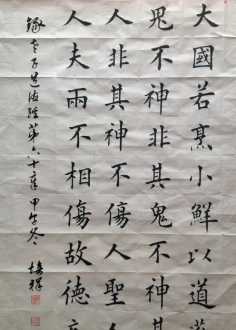 大國若烹小鮮以道
鬼不神非其鬼不神其
人非其神不傷人聖
人夫兩不相傷故德
錄老子道德經第六十章甲午冬